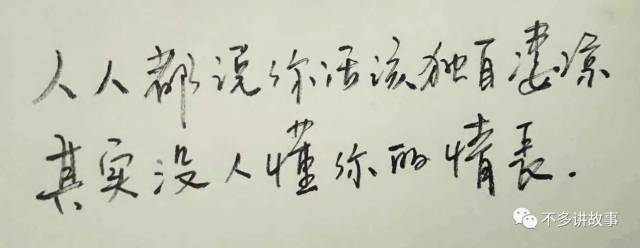 人人都说你活该独自凄凉
其实没人懂你的情长.
不多讲故事